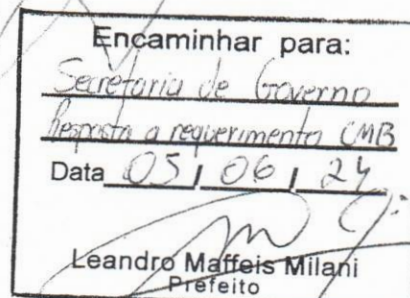 Encaminhar para:
Secretaria de Governo
Resposta a requerimento CMB
Data 05 / 06 / 24
Leandro Maffeis Milani
Prefeito